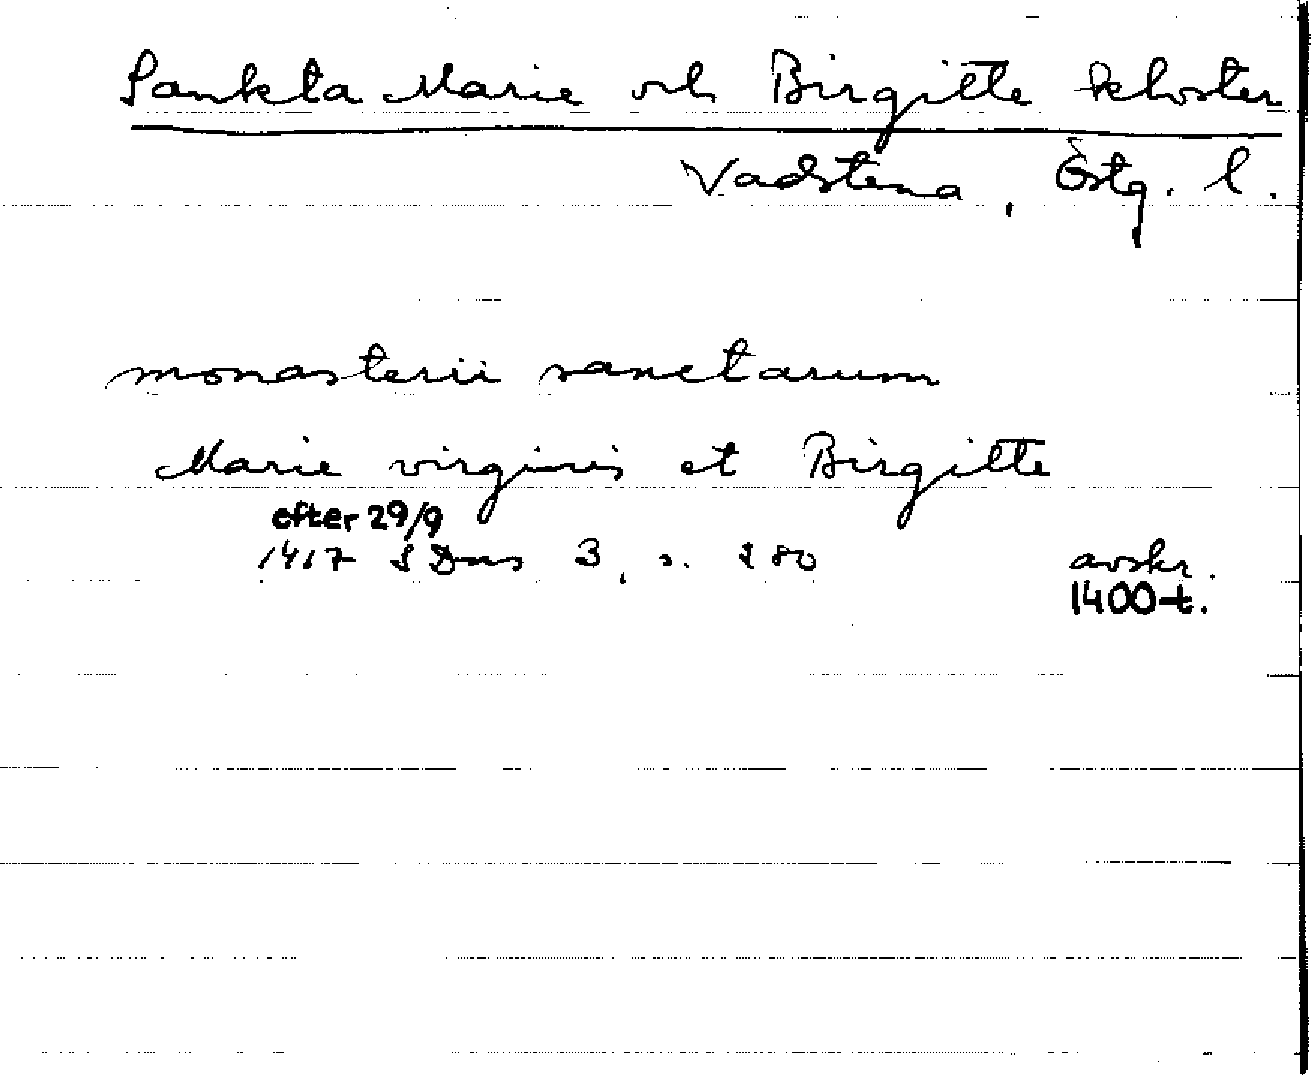 Sankta Marie och Birgitte kloster
Vadstena, Östg. l.
monasterii sanctarum
Marie virginis et Birgitte
efter 29/9
1417 SDns 3, s. 280 avskr.
1400-t.